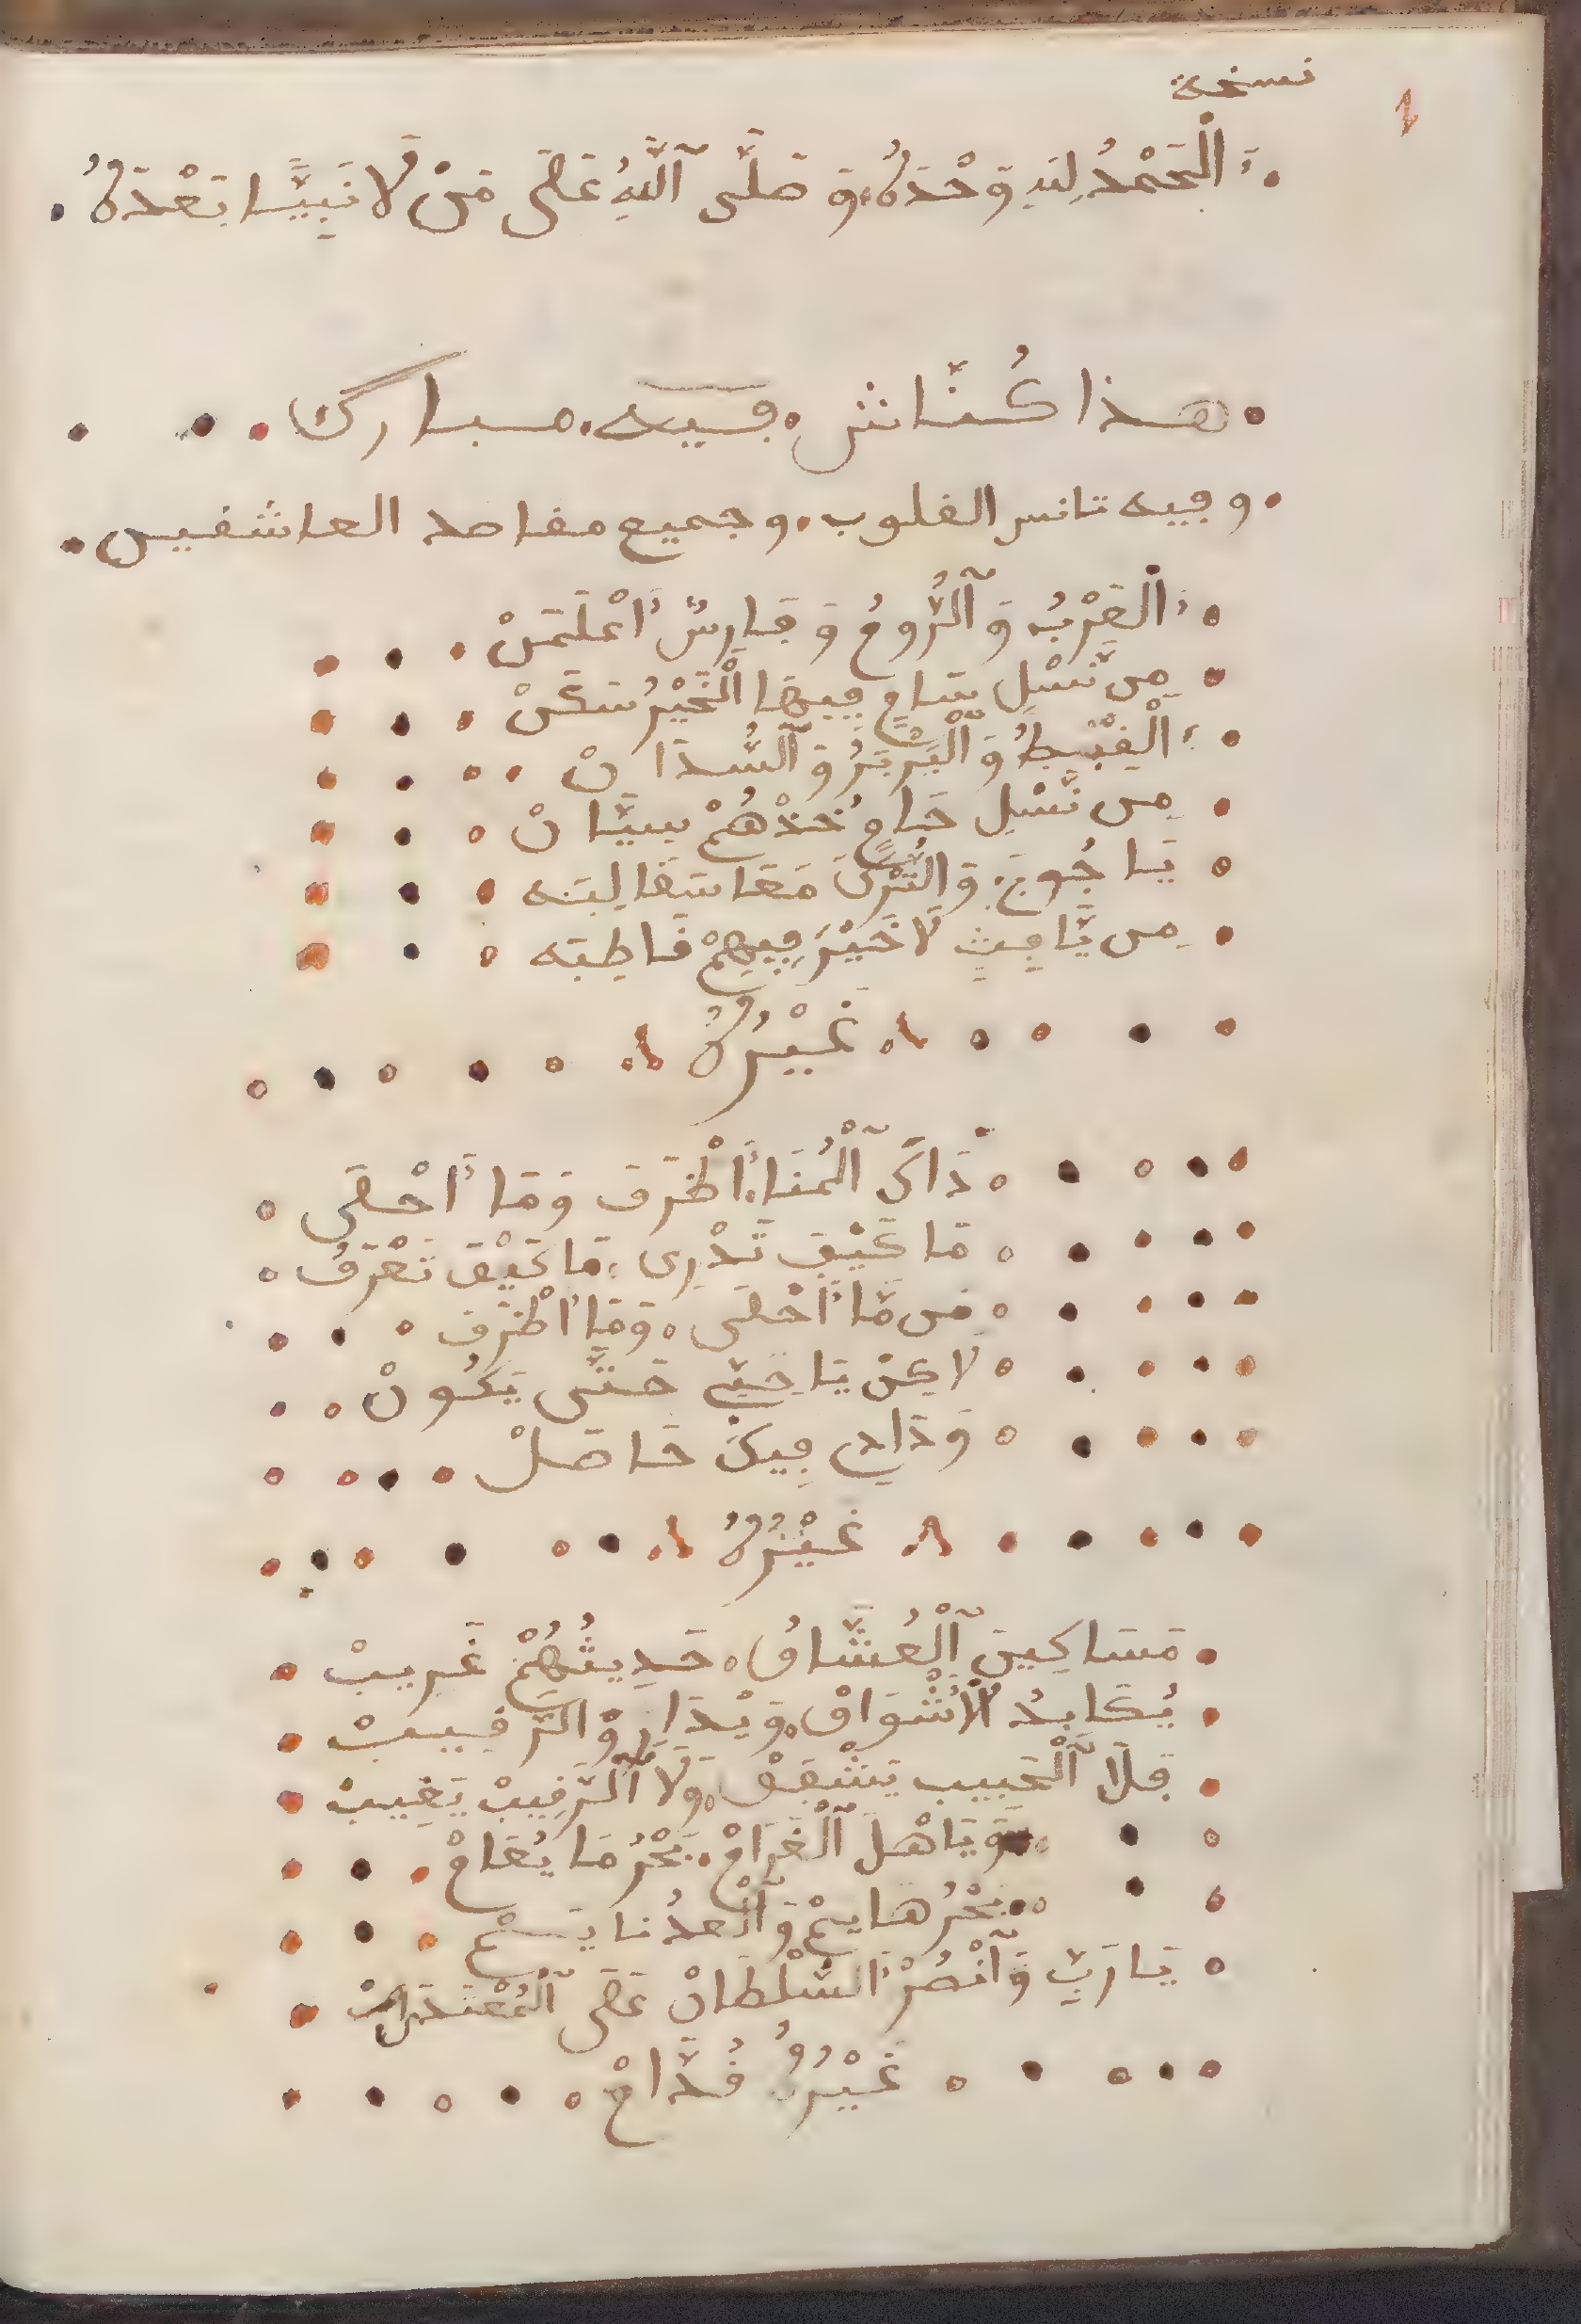 نسخة
اَلْحَمْدُ لِلهِ وَحْدَهُ وَصَلَّى اَللَّهُ عَلَى مَنْ لَا نَبِيَّا بَعْدَهُ
هذا كُنَّاش فيه مبارك
وفيه تانس القلوب وجميع مقاصد العاشقين
اَلْعَرْبُ وَاَلرُّومُ وَفَارِسٌ اَعْلَمَنْ
مِن نَّسْلِ سَامٍ فِيهَا اَلْخَيْرُ سَكَنْ
اَلْقِبْطُ وَاَلْبَرْبَرُ وَاَلسُّدَانْ
مِن نَّسْلِ حَامٍ خُذْهُمْ بِبَيَّانْ
يَاجُوجَ وَالتُّرْكَ مَعَا سَقَالِبَه
مِن يَّافِثٍ لَا خَيْرَ فِيهِمْ قَاطِبَه
غَيْرُهُ
ذَاكَ اَلْمُنَا اَظْرَفَ وَمَا اَحْلَى
مَا كَيْفَ تَدْرِى مَا كَيْفَ تَعْرَفُ
مِن مَّا اَحْلَى وَمَا اَظْرَفَ
لَاكِنْ يَا حِبِّي حَتَّى يَكُونْ
وَدَادِي فِيكَ حَاصَلْ
غَيْرُهُ
مَسَاكِينَ اَلْعُشَّاقُ حَدِيثُهُمْ غَرِيبْ
يُكَابِدُ الْأَشْوَاقْ وَيْدَارِوْ الرَّقِيبْ
فَلَا اَلْحَبِيب يَشْفَقْ وَلَا اَلرَّقِيبْ يَغِيبْ
وَيَاهْلَ اَلْغَرَامْ بَحْرُ مَا يُعَامْ
بَحْرُ هَايمْ وَ
يَارَبِّ وَاَنْصُرْ السُّلْطَانْ عَلَى اَلْمُعْتَدِينْ
غَيْرُهُ قُدَّامْ